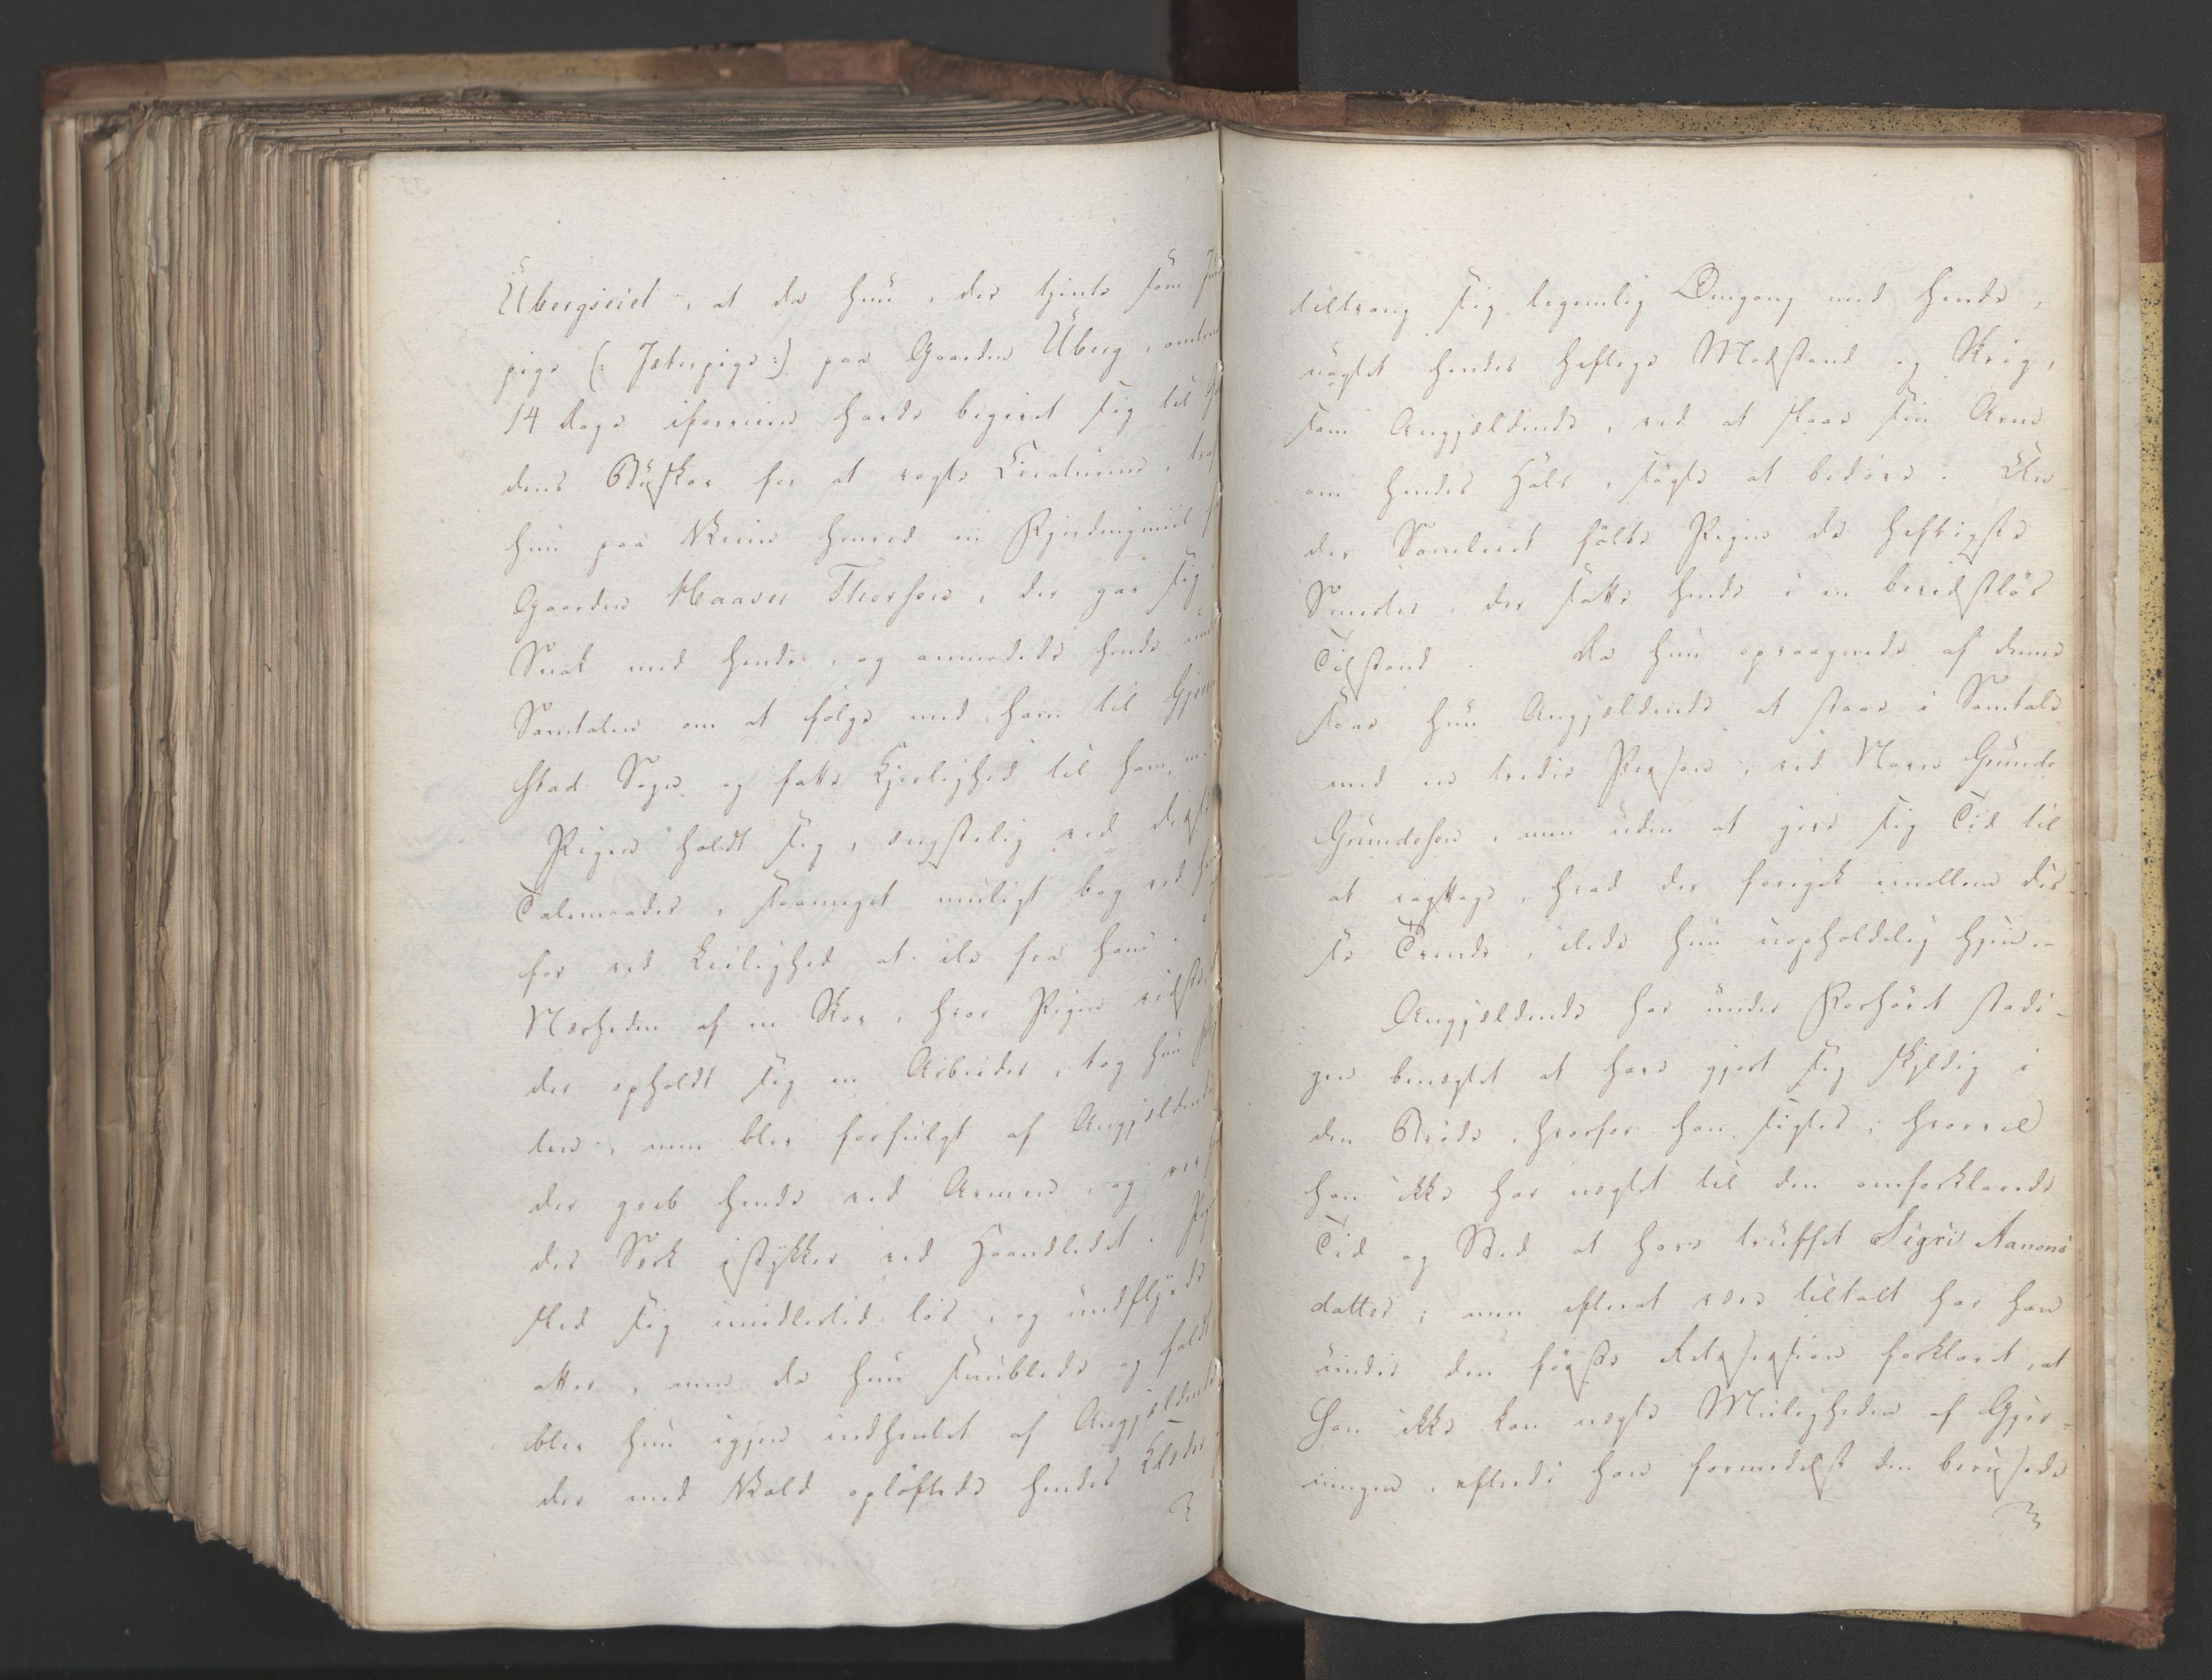 Ubergseiet, at da hun, der tjente som
pige (: Jæterpige :) paa Gaarden Uberg, omtrent
14 Dage iforveien havde begivet sig til
dens Buskar for at røgte Kreaturene, traf
hun paa Veien henved en Fjerdingmiil fra
Gaarden Haaver Thorsen, der gav sig i
Snak med hende, og anmodede hende under
Samtalen om at følge med ham til Gjerre-
stad Sogn og fatte Kjerlighed til ham, men
Pigen holdt sig, ængstelig ved disse
Talemaader, saameget muligt bag ved ham
for ved Leilighed at ile fra ham. I
Nærheden af en Skov, hvor Pigen vidste
der opholdt sig en Arbeider, tog hun Flug-
ten, men blev forfulgt af Angjeldende
der greb hende ved Armen, og rev hen-
des Særk istykker ved Haandledet. Pigen
sled sig imidlertid løs, og undflyede
atter, men da hun snublede og faldt
blev hun igjen indhentet af Angjeldende
der med Vold opløftede hendes Klæder
tiltvang sig legemlig Omgang med hende,
uagtet hendes heftige Modstand og Skrig,
som Angjeldende, ved at slaae sin Arm
om hendes Hals, søgte at bedøve. Un-
der Samleiet følte Pigen de heftigste
Smerter, der satte hende i en bevidstløs
Tilstand. Da hun opvaagnede af denne
saae hun Angjeldende at staae i Samtale
med en tredie Person, ved Navn Gunde
Gundesen, men uden at give sig Tid til
at iagttage, hvad der foregik imellem dis-
se Tvende, ilede hun uopholdelig hjem.-
Angjeldende har under Forhøret stadi-
gen benegtet at have gjort sig skyldig i
den Brøde, hvorfor han sigtes; hvorvel
han ikke har negtet til den omforklarede
Tid og Sted at have truffet Sigri Aanons-
datter; men efterat være tiltalt har han
under den første Retssession forklaret, at
han ikke kan negte Muligheden af Gjer-
ningen, efterdi han formedelst den berusede